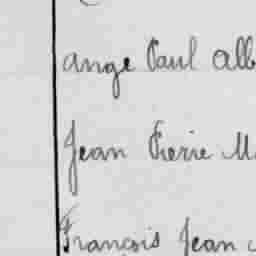 Ange Paul Alb
Jean Pierre M
François Jean